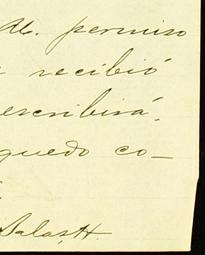 permiso
recibió
escribirá.
quedo co-
Salas, H.